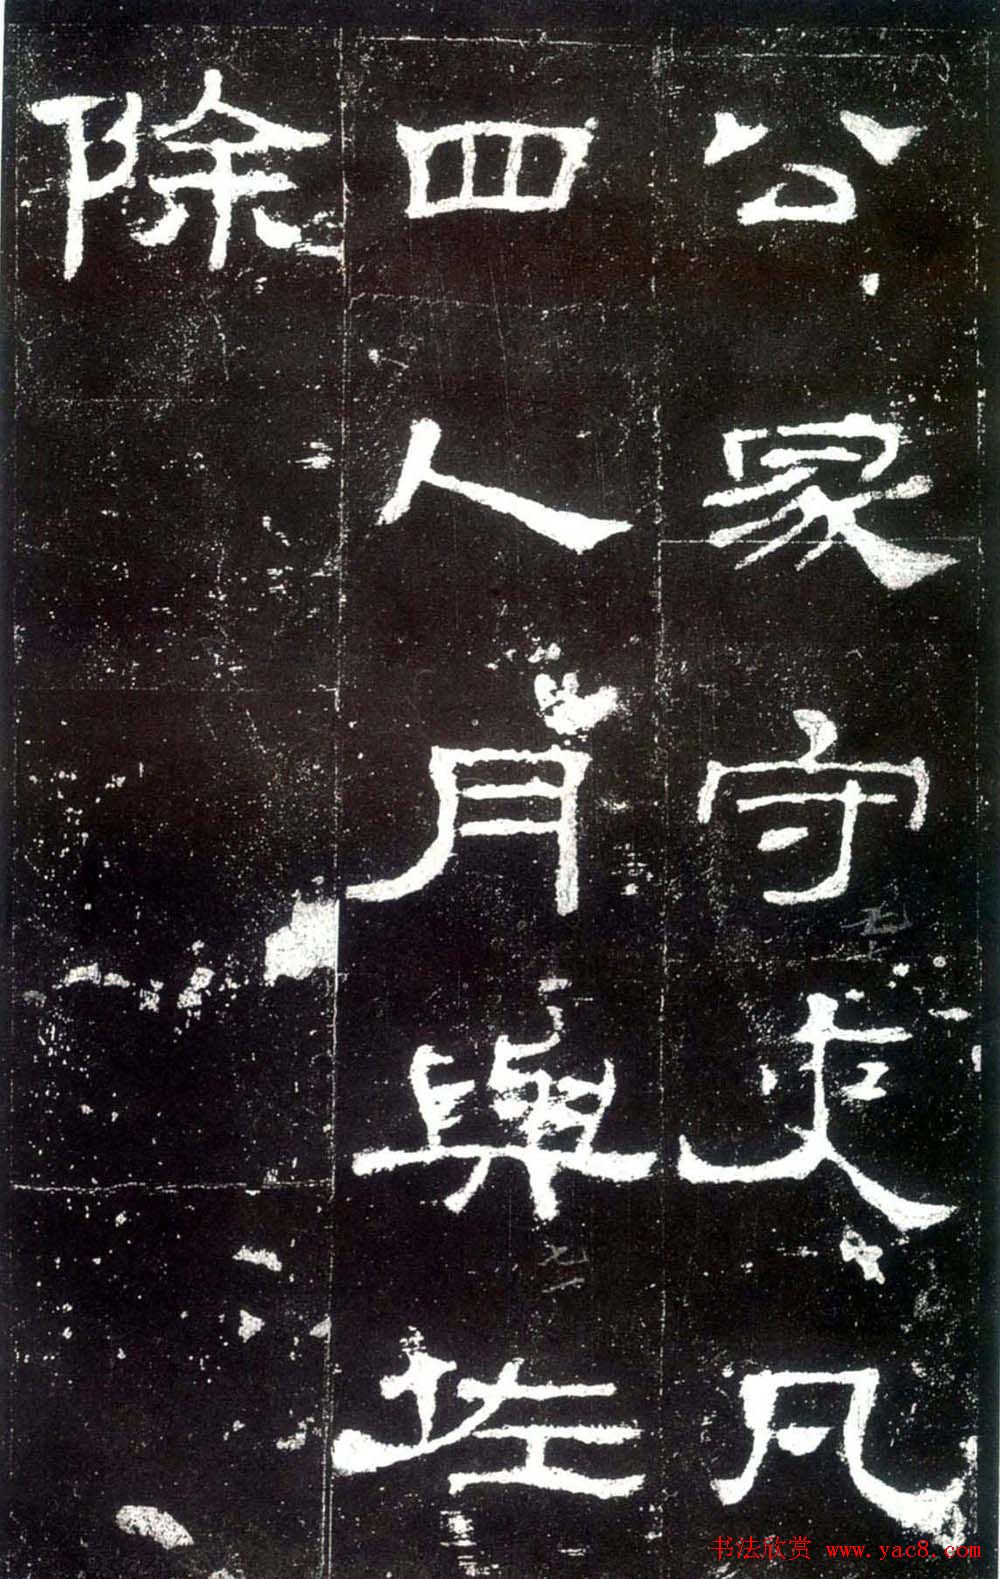 公冢守吏凡
四人月與佐
除
书法欣赏 www.yac8.com